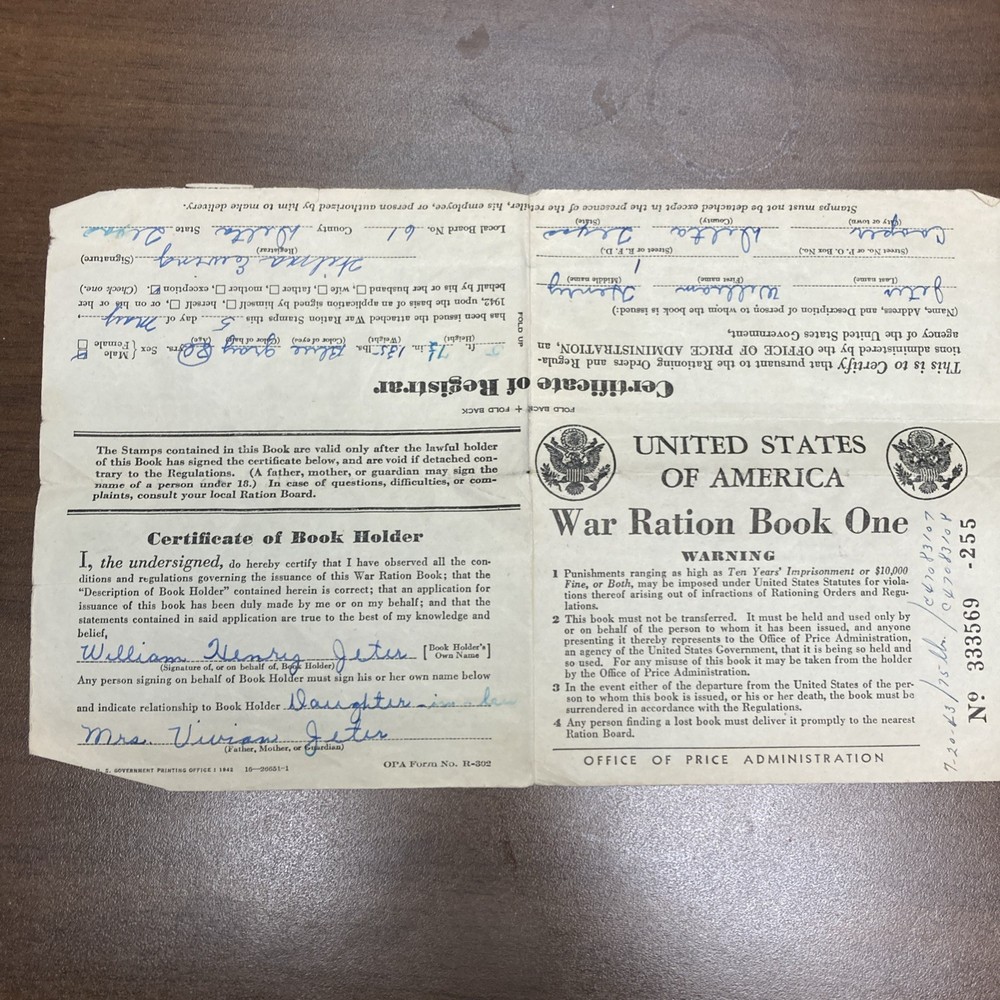 Certificate of Registrar
This is to Certify that pursuant to the Rationing Orders and Regula-
tions administered by the OFFICE OF PRICE ADMINISTRATION, an
agency of the United States Government,
(Name, Address, and Description of person to whom the book is issued:)
Jeter William Henry
(Last name) (First name) (Middle name)
(Street No. or P. O. Box No.) (Street or R. F. D.)
Cooper Delta Texas
(City or town) (County) (State)
5 ft. 7½ in. 135 lbs. Blue gray 80 yrs. Sex { Male ☑ Female ☐
(Height) (Weight) (Color of eyes) (Color of hair) (Age)
has been issued the attached War Ration Stamps this 5 day of May
1942, upon the basis of an application signed by himself ☐, herself ☐, or on his or her
behalf by his or her husband ☐, wife ☐, father ☐, mother ☐, exception ☑. (Check one.)
Wilma Ewing (Signature)
(Registrar)
Local Board No. 61 County Delta State Texas
Stamps must not be detached except in the presence of the retailer, his employee, or person authorized by him to make delivery.
FOLD UP
FOLD BACK + FOLD BACK
The Stamps contained in this Book are valid only after the lawful holder
of this Book has signed the certificate below, and are void if detached con-
trary to the Regulations. (A father, mother, or guardian may sign the
name of a person under 18.) In case of questions, difficulties, or com-
plaints, consult your local Ration Board.
Certificate of Book Holder
I, the undersigned, do hereby certify that I have observed all the con-
ditions and regulations governing the issuance of this War Ration Book; that the
“Description of Book Holder” contained herein is correct; that an application for
issuance of this book has been duly made by me or on my behalf; and that the
statements contained in said application are true to the best of my knowledge and
belief,
William Henry Jeter [Book Holder's Own Name]
(Signature of, or on behalf of, Book Holder)
Any person signing on behalf of Book Holder must sign his or her own name below
and indicate relationship to Book Holder Daughter-in-law
Mrs. Vivian Jeter
(Father, Mother, or Guardian)
S. GOVERNMENT PRINTING OFFICE : 1942 16—26651-1 OPA Form No. R-302
UNITED STATES
OF AMERICA
War Ration Book One
WARNING
1 Punishments ranging as high as Ten Years' Imprisonment or $10,000
Fine, or Both, may be imposed under United States Statutes for viola-
tions thereof arising out of infractions of Rationing Orders and Regu-
lations.
2 This book must not be transferred. It must be held and used only by
or on behalf of the person to whom it has been issued, and anyone
presenting it thereby represents to the Office of Price Administration,
an agency of the United States Government, that it is being so held and
so used. For any misuse of this book it may be taken from the holder
by the Office of Price Administration.
3 In the event either of the departure from the United States of the per-
son to whom this book is issued, or his or her death, the book must be
surrendered in accordance with the Regulations.
4 Any person finding a lost book must deliver it promptly to the nearest
Ration Board.
OFFICE OF PRICE ADMINISTRATION
C47083107
C47083108
Nº 333569 -255